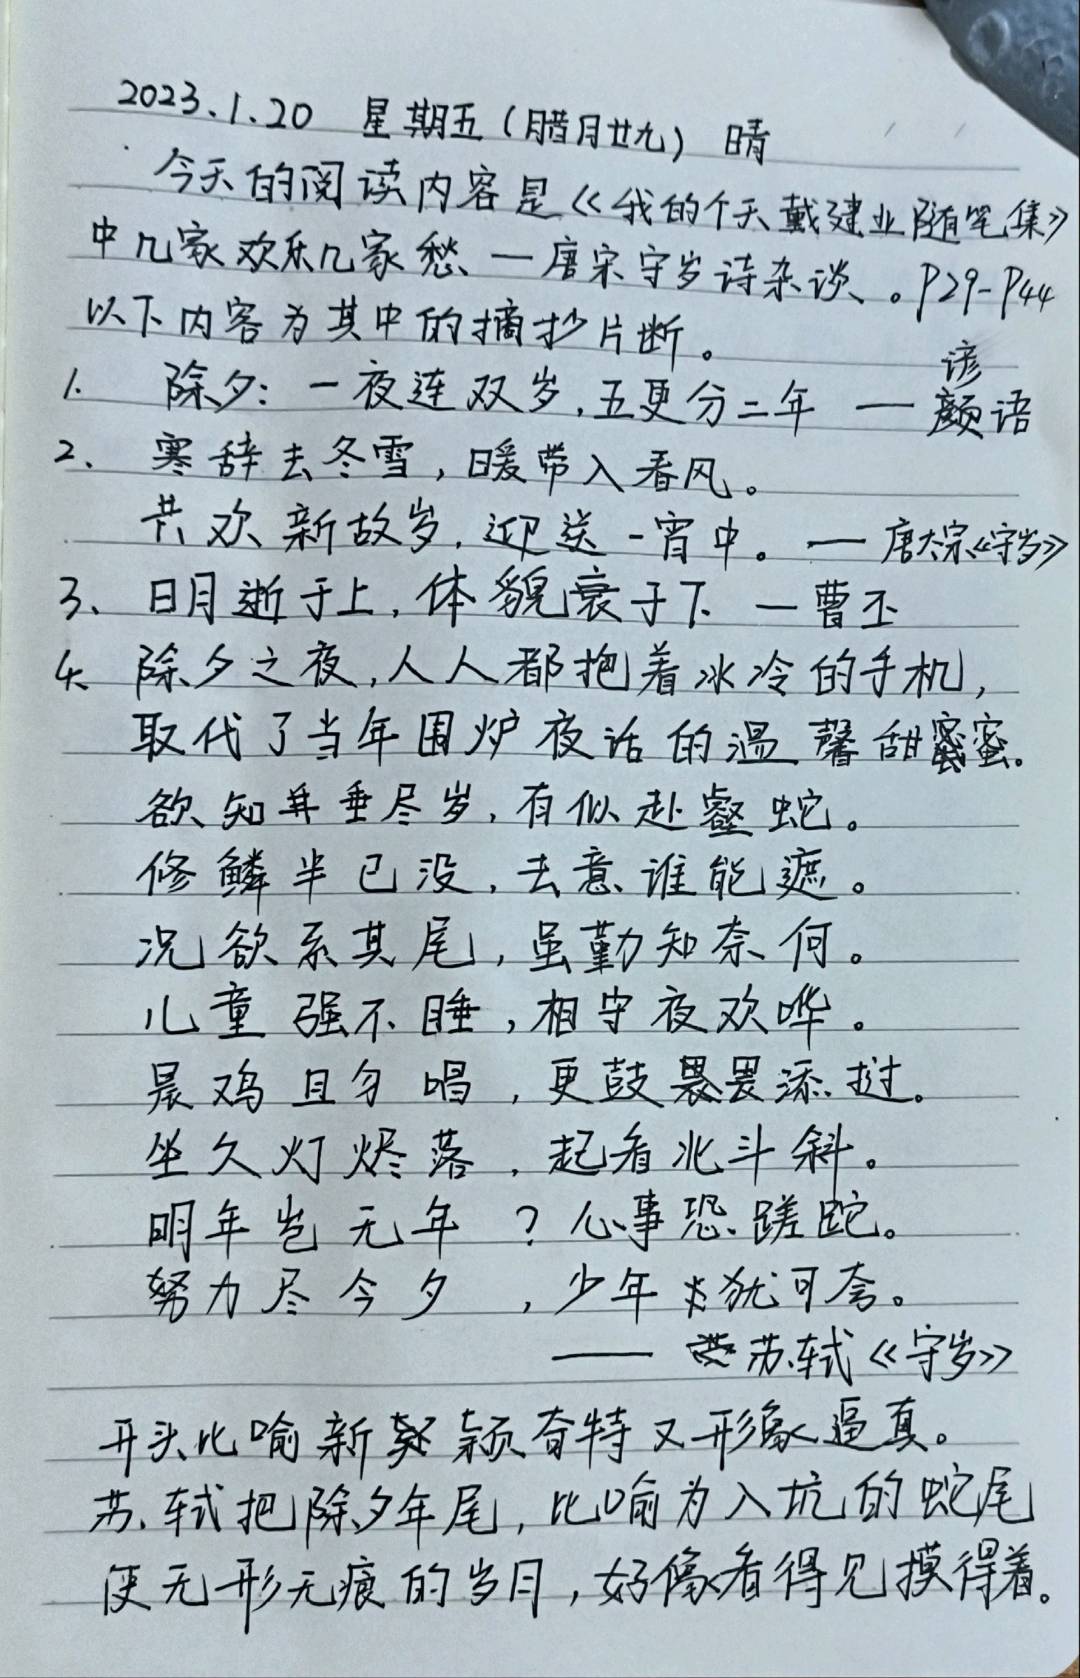 2023.1.20 星期五(腊月廿九) 晴
今天的阅读内容是《我的个天戴建业随笔集》
中几家欢乐几家愁—唐宋守岁诗杂谈、。P29-P44
以下内容为其中的摘抄片断。
谚
1. 除夕:一夜连双岁,五更分二年 — 颜语
2、 寒辞去冬雪,暖带入春风。
共欢新故岁,迎送一宵中。—唐太宗《守岁》
3、日月逝于上,体貌衰于下 —曹丕
4、除夕之夜,人人都抱着冰冷的手机,
取代了当年围炉夜话的温馨甜蜜。
欲知垂尽岁,有似赴壑蛇。
修鳞半已没,去意谁能遮。
况欲系其尾,虽勤知奈何。
儿童强不睡,相守夜欢哗。
晨鸡且勿唱,更鼓畏添挝。
坐久灯烬落,起看北斗斜。
明年岂无年?心事恐蹉跎。
努力尽今夕,少年犹可夸。
—— 苏轼《守岁》
开头比喻新颖奇特又形象逼真。
苏轼把除夕年尾,比喻为入坑的蛇尾
使无形无痕的岁月,好像看得见摸得着。